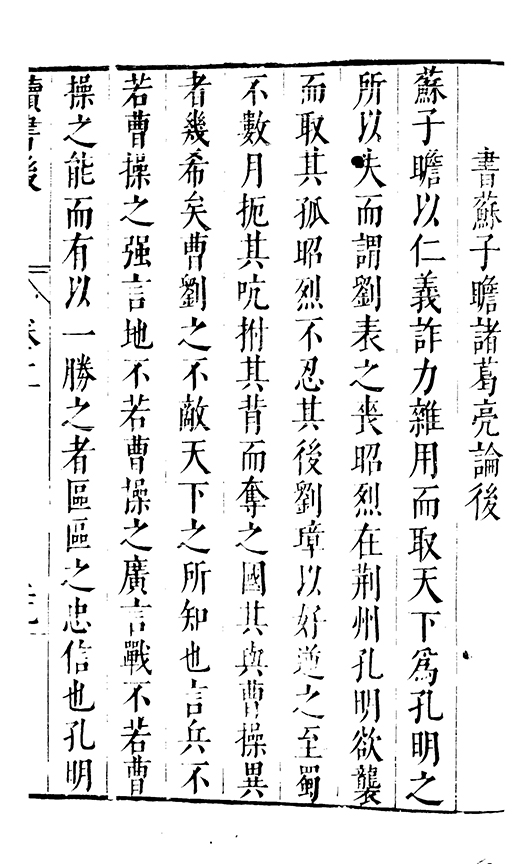 書蘇子瞻諸葛亮論後
蘇子瞻以仁義詐力雜用而取天下爲孔明之
所以失而謂劉表之喪昭烈在荆州孔明欲襲
而取其孤昭烈不忍其後劉璋以好逆之至蜀
不數月扼其吭拊其背而奪之國其與曹操異
者幾希矣曹劉之不敵天下之所知也言兵不
若曹操之强言地不若曹操之廣言戰不若曹
操之能而有以一勝之者區區之忠信也孔明
讀書後